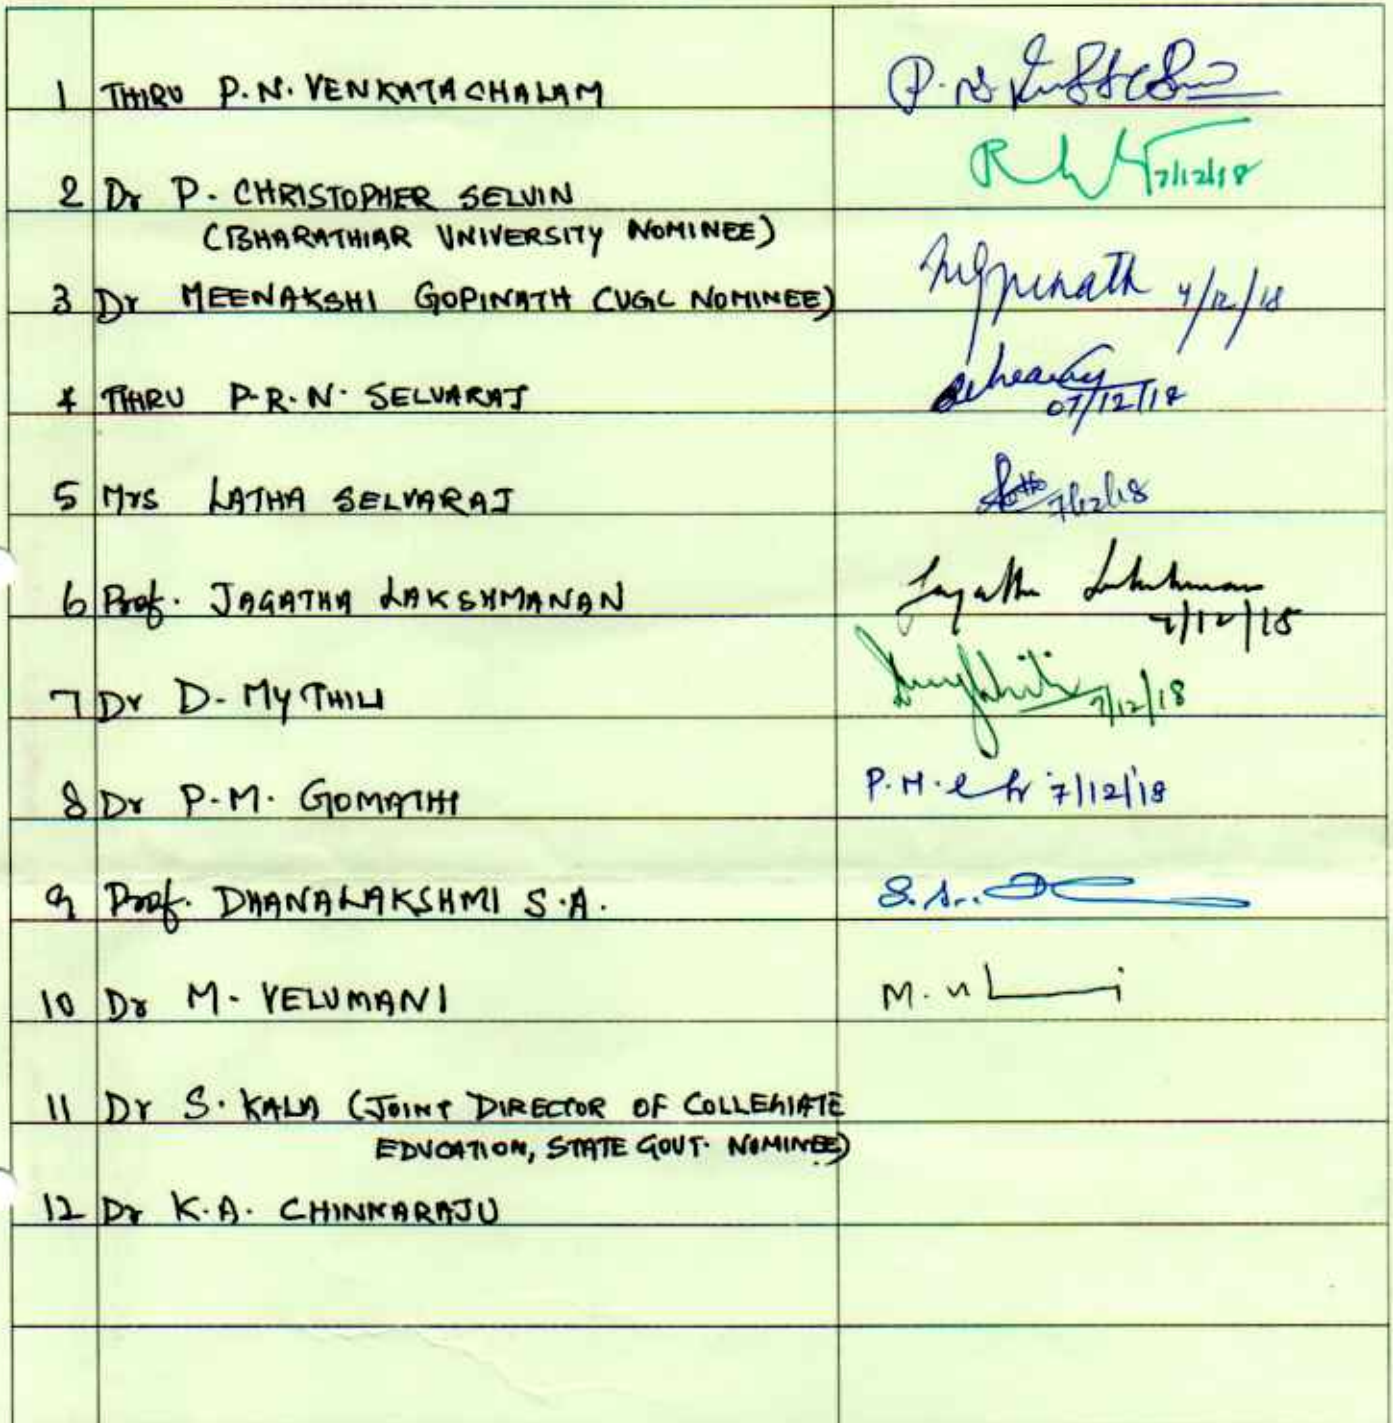 1 THIRU P.N. VENKATACHALAM P.N.
2 Dr P. CHRISTOPHER SELVIN 7/12/18
(BHARATHIAR UNIVERSITY NOMINEE)
3 Dr MEENAKSHI GOPINATH (UGC NOMINEE) Mgopinath 7/12/18
4 THIRU P.R.N. SELVARAJ 07/12/18
5 Mrs LATHA SELVARAJ 7/12/18
6 Prof. JAGATHA LAKSHMANAN Jagatha Lakshmanan 7/12/18
7 Dr D. MYTHILI 7/12/18
8 Dr P.M. GOMATHI P.M. 7/12/18
9 Prof. DHANALAKSHMI S.A. S.A.
10 Dr M. VELUMANI M.
11 Dr S. KALA (JOINT DIRECTOR OF COLLEGIATE
EDUCATION, STATE GOVT. NOMINEE)
12 Dr K.A. CHINNARAJU